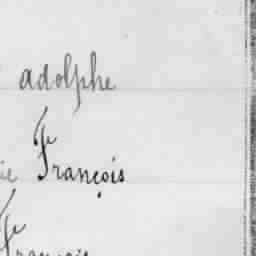 adolphe
ie François
François